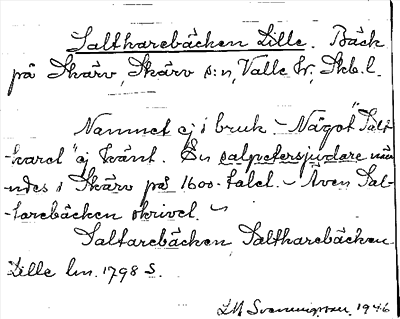 Saltharebäcken Lille. Bäck
på Skärv, Skärv s:n, Valle hd, Skb.l.
Namnet ej i bruk – Något "Salt-
-karel" ej känt. En salpetersjudare näm-
ndes i Skärv på 1600-talet. – Även Sal-
-tarebäcken skrivet. ~
Saltarebäcken Saltharebäcken
Lille lm. 1798 S.
1946